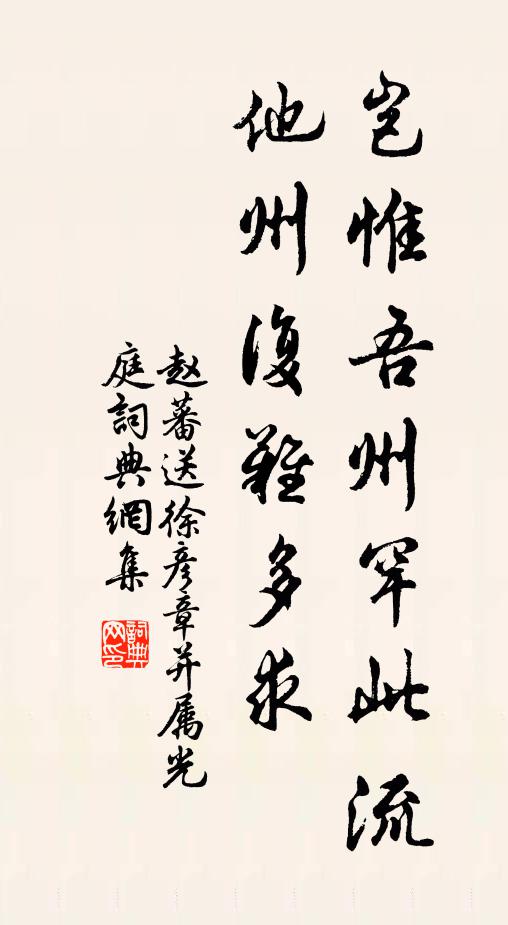 豈惟吾州罕此流
他州復難多求
赵蕃送徐彦章并属光
庭詞典網集
詞典網印